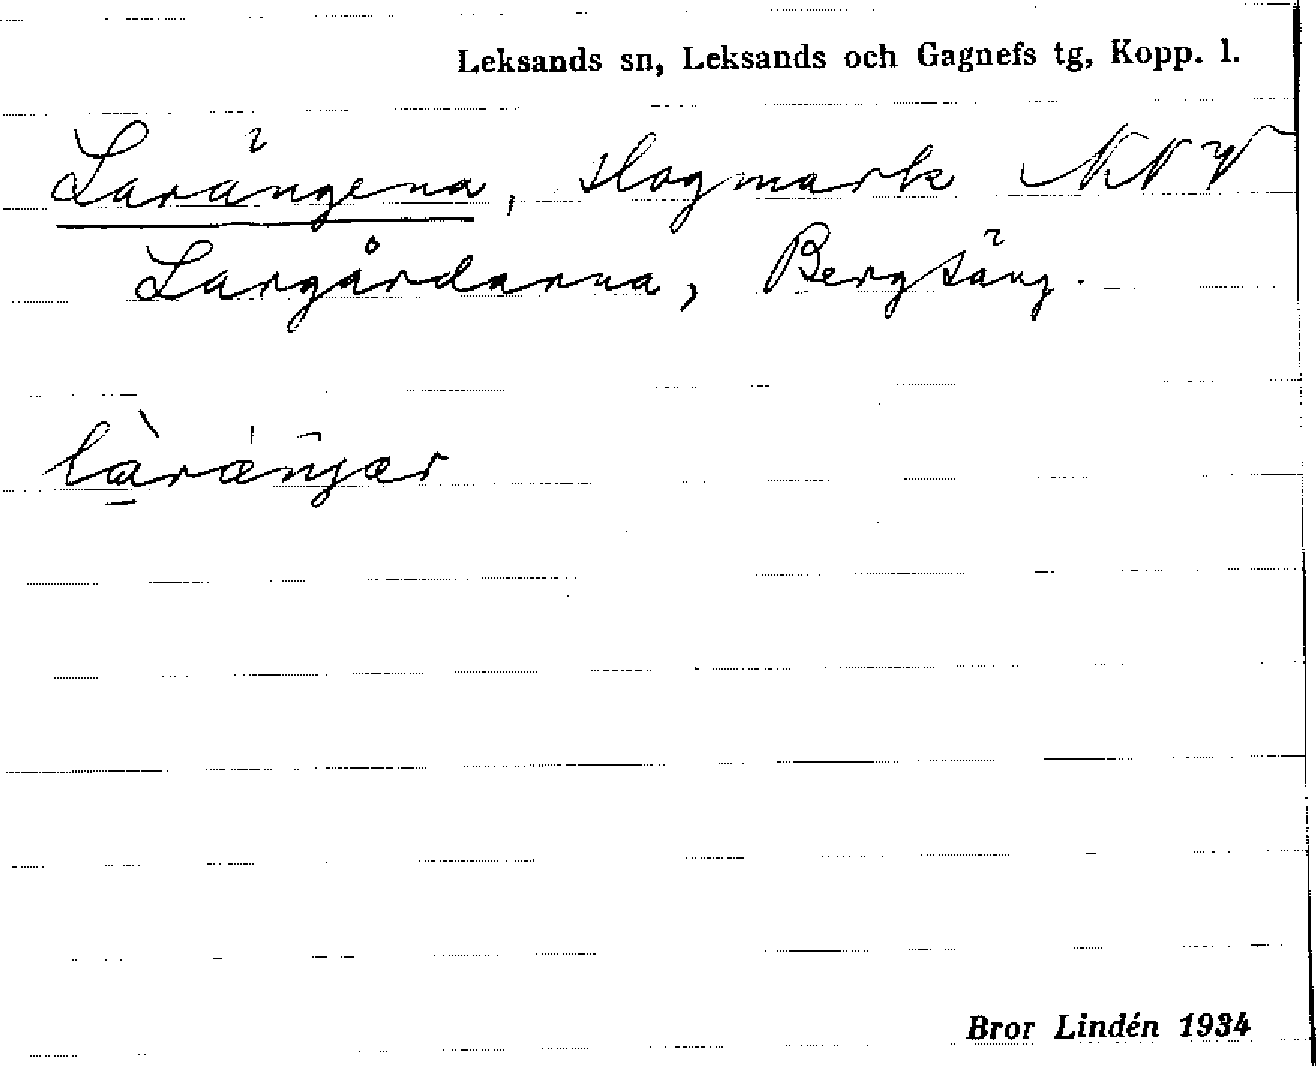 Leksands sn, Leksands och Gagnefs tg, Kopp. l.
Larängena, slogmark NNV
Largårdarna, Bergsäng.
làrängär
Bror Lindén 1934